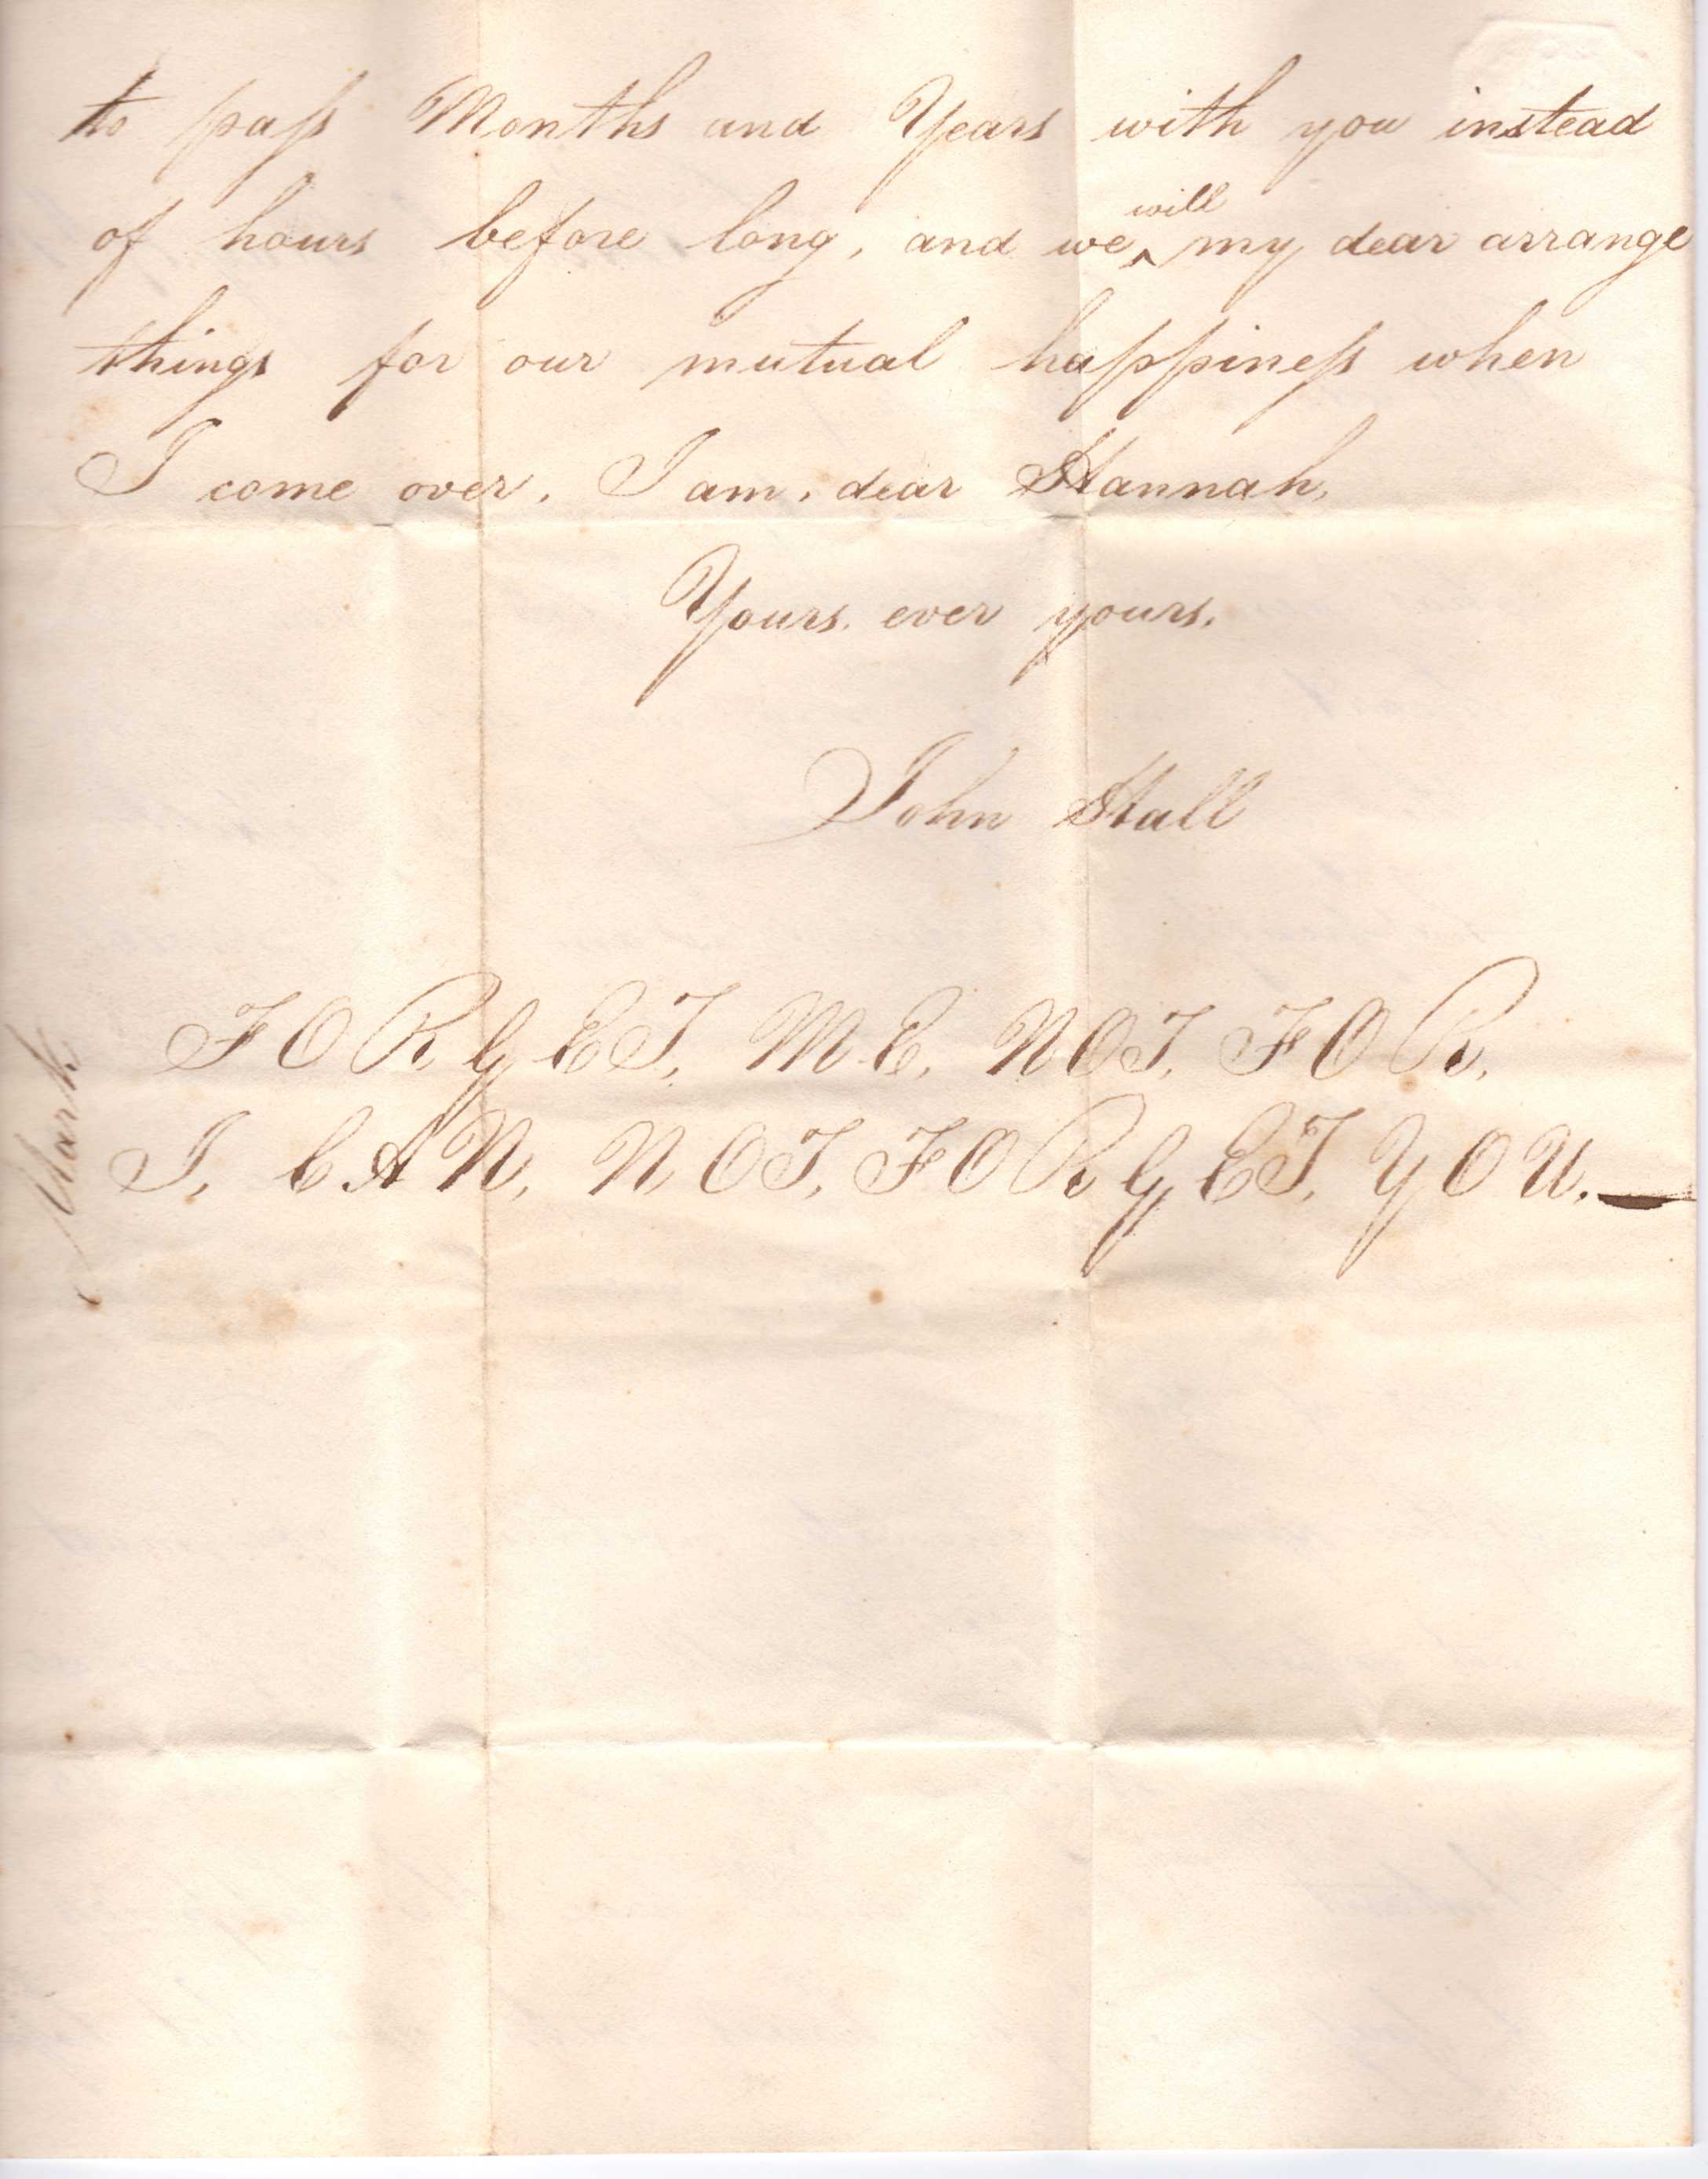 to paſs Months and Years with you instead
of hours before long, and we ‸will my dear arrange
things for our mutual happineſs when
I come over. I am, dear Hannah,
Yours. ever yours.
John Hall
FORGET, ME, NOT, FOR,
I, CAN, NOT, FORGET, YOU.—
Mark